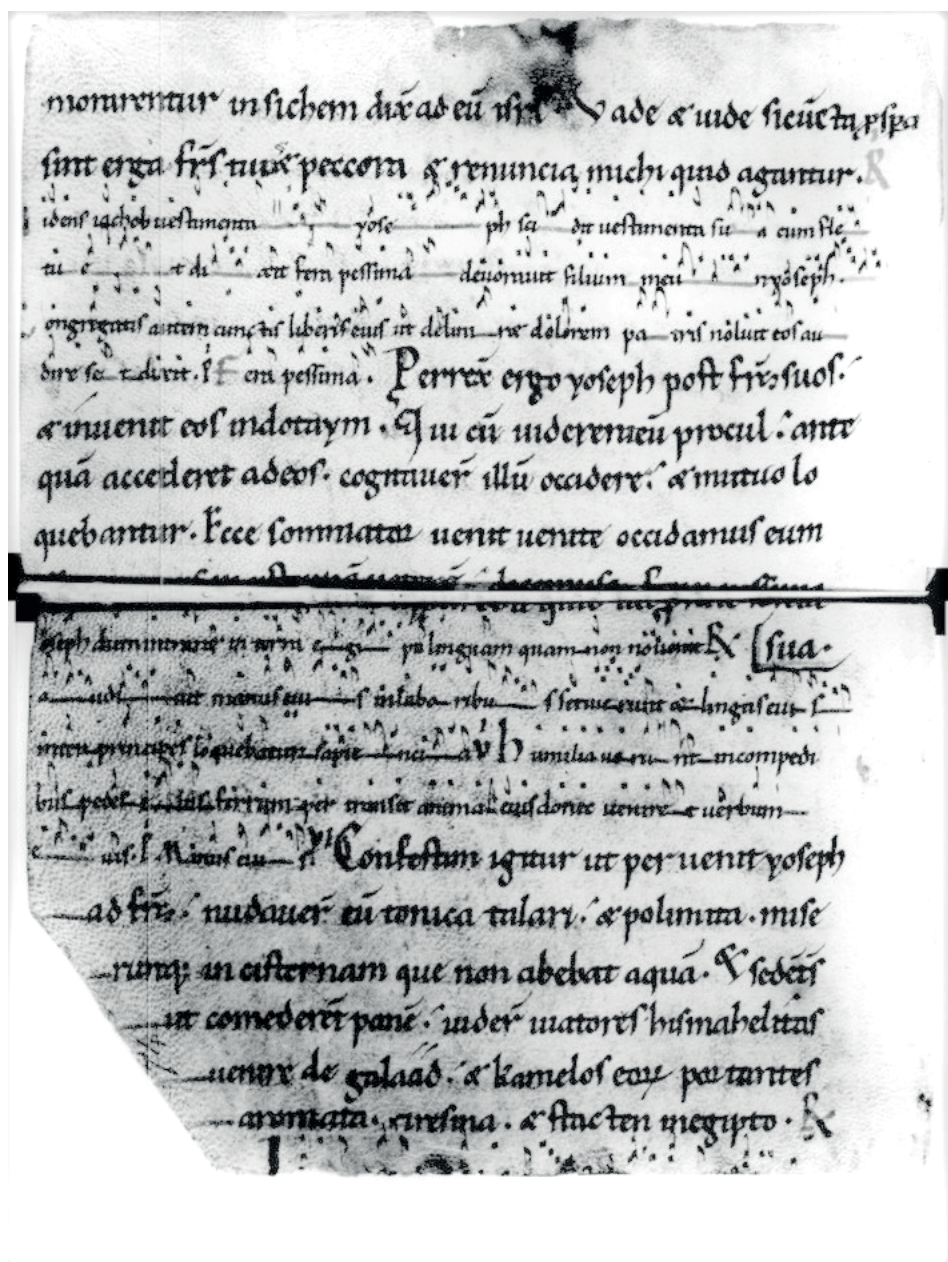 morarentur in sichem dix ad eū isrł Vade & uide si cūcta pspa
sint erga frs tuos & peccora & renuncia michi quid agantur. R
idens iachob uestimenta yose ph sci dit uestimenta su a cum fle
tu e t di xit fera pessima deuorauit filium meu m yoseph.
ongregatis autem cunctis liberis eius ut delini re dolorem pa tris noluit eos au
dire se t dixit. F era pessima. Perrex ergo yoseph post frs suos.
& inuenit eos in dotaym. Qui cū uiderent eū procul. ante
quā accederet ad eos. cogitauer illū occidere. & mutuo lo
quebantur. Ecce somniator uenit uenite occidamus eum
oseph dum intraret in terra egi pti linguam quam non nouerat R [sua.
a udi uit manus eiu s in labo ribu s seruierunt & lingua eius s
inter principes loquebatur sapie nci a V humiliauerunt in compedi
bus pedes eius ferrum per transiit anima eius donec ueniret uerbum
e ius. Manus eiu s VI Confestim igitur ut peruenit yoseph
ad frs. nudauer eū tonica talari. & polimita. mise
runtq; in cisternam que non abebat aquā. & sedēts
ut comederēt panē. uider uiatores hismahelitas
uenire de galaad. & kamelos eorꝝ portantes
aromata. & resina. & stacten in egipto. R